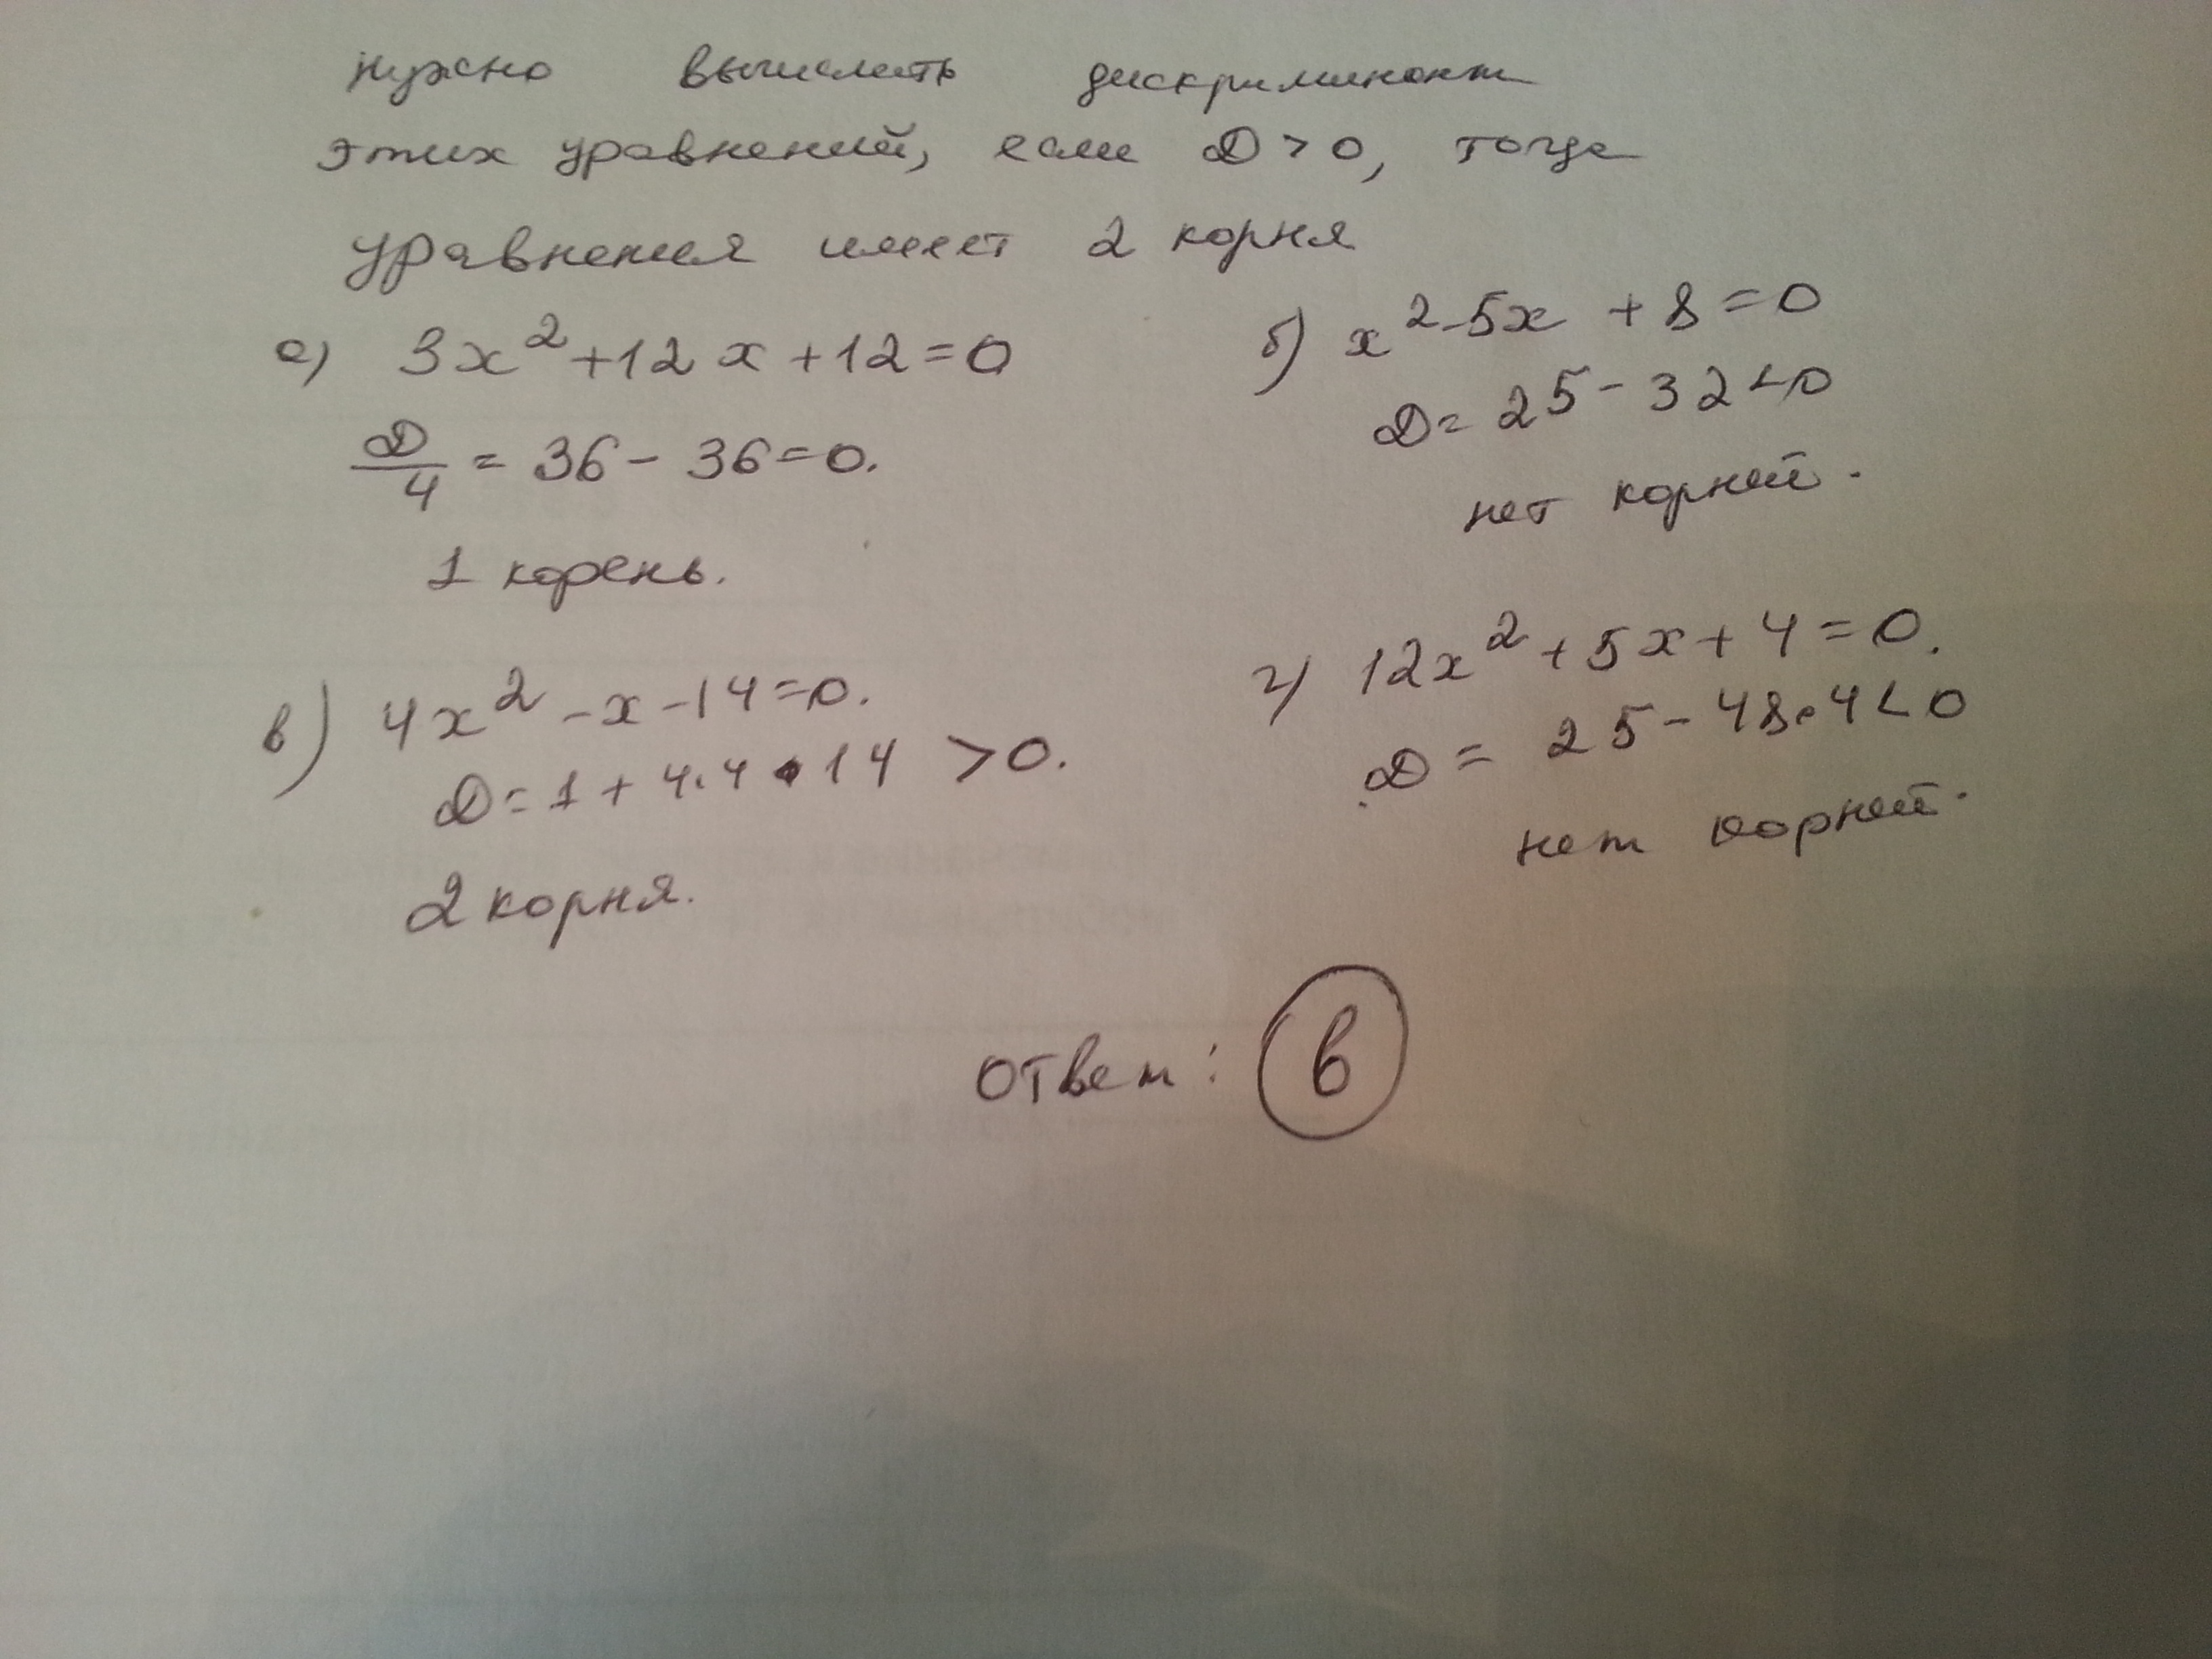 нужно вычислить дискриминант
этих уравнений, если D > 0, тогда
уравнения имеет 2 корня
а) 3x² + 12x + 12 = 0
D/4 = 36 - 36 = 0.
1 корень.
б) x² - 5x + 8 = 0
D = 25 - 32 < 0
нет корней.
в) 4x² - x - 14 = 0.
D = 1 + 4·4·14 > 0.
2 корня.
г) 12x² + 5x + 4 = 0.
D = 25 - 48·4 < 0
нет корней.
ответ: в